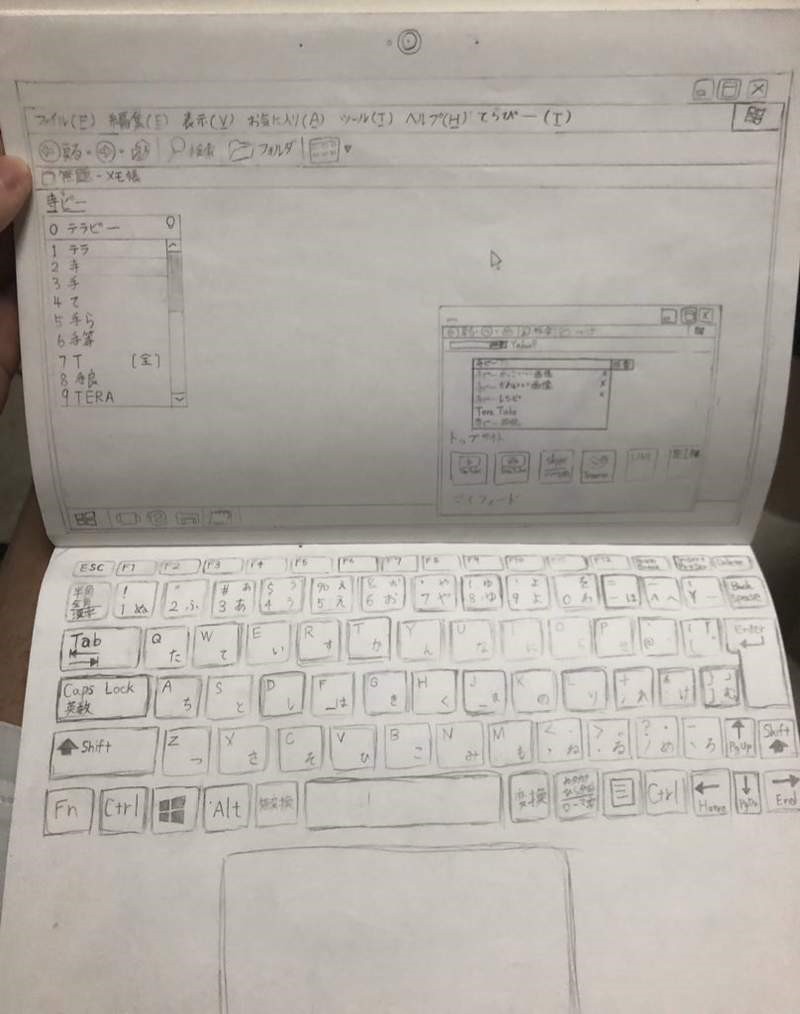 ファイル(F) 編集(E) 表示(V) お気に入り(A) ツール(T) ヘルプ(H) てらぴー(T)
戻る 検索 フォルダ
無題 - メモ帳
寺ピー
0 テラピー
1 テラ
2 寺
3 手
4 て
5 手ら
6 手等
7 T [全]
8 手良
9 TERA
Yahoo!
Tera Tube
ESC F1 F2 F3 F4 F5 F6 F7 F8 F9 F10 F12
半角 全角 漢字
! 1 ぬ " 2 ふ # ぁ 3 あ $ ぅ 4 う % ぇ 5 え & ぉ 6 お ' ゃ 7 や ( ゅ 8 ゆ ) ょ 9 よ を 0 わ = - ほ ^ へ ¥ ー Back Space
Tab Q た W て E い R す T か Y ん U な I に O ら P せ @ [ Enter
Caps Lock 英数 A ち S と D し F は G き H く J ま K の L り + ; れ * : け } ] む
Shift Z つ X さ C そ V ひ B こ N み M も < , ね > . る ? / め _ ろ PgUp Shift
Fn Ctrl Alt 無変換 変換 カタカナ ひらがな ローマ字 Ctrl Home PgDn End